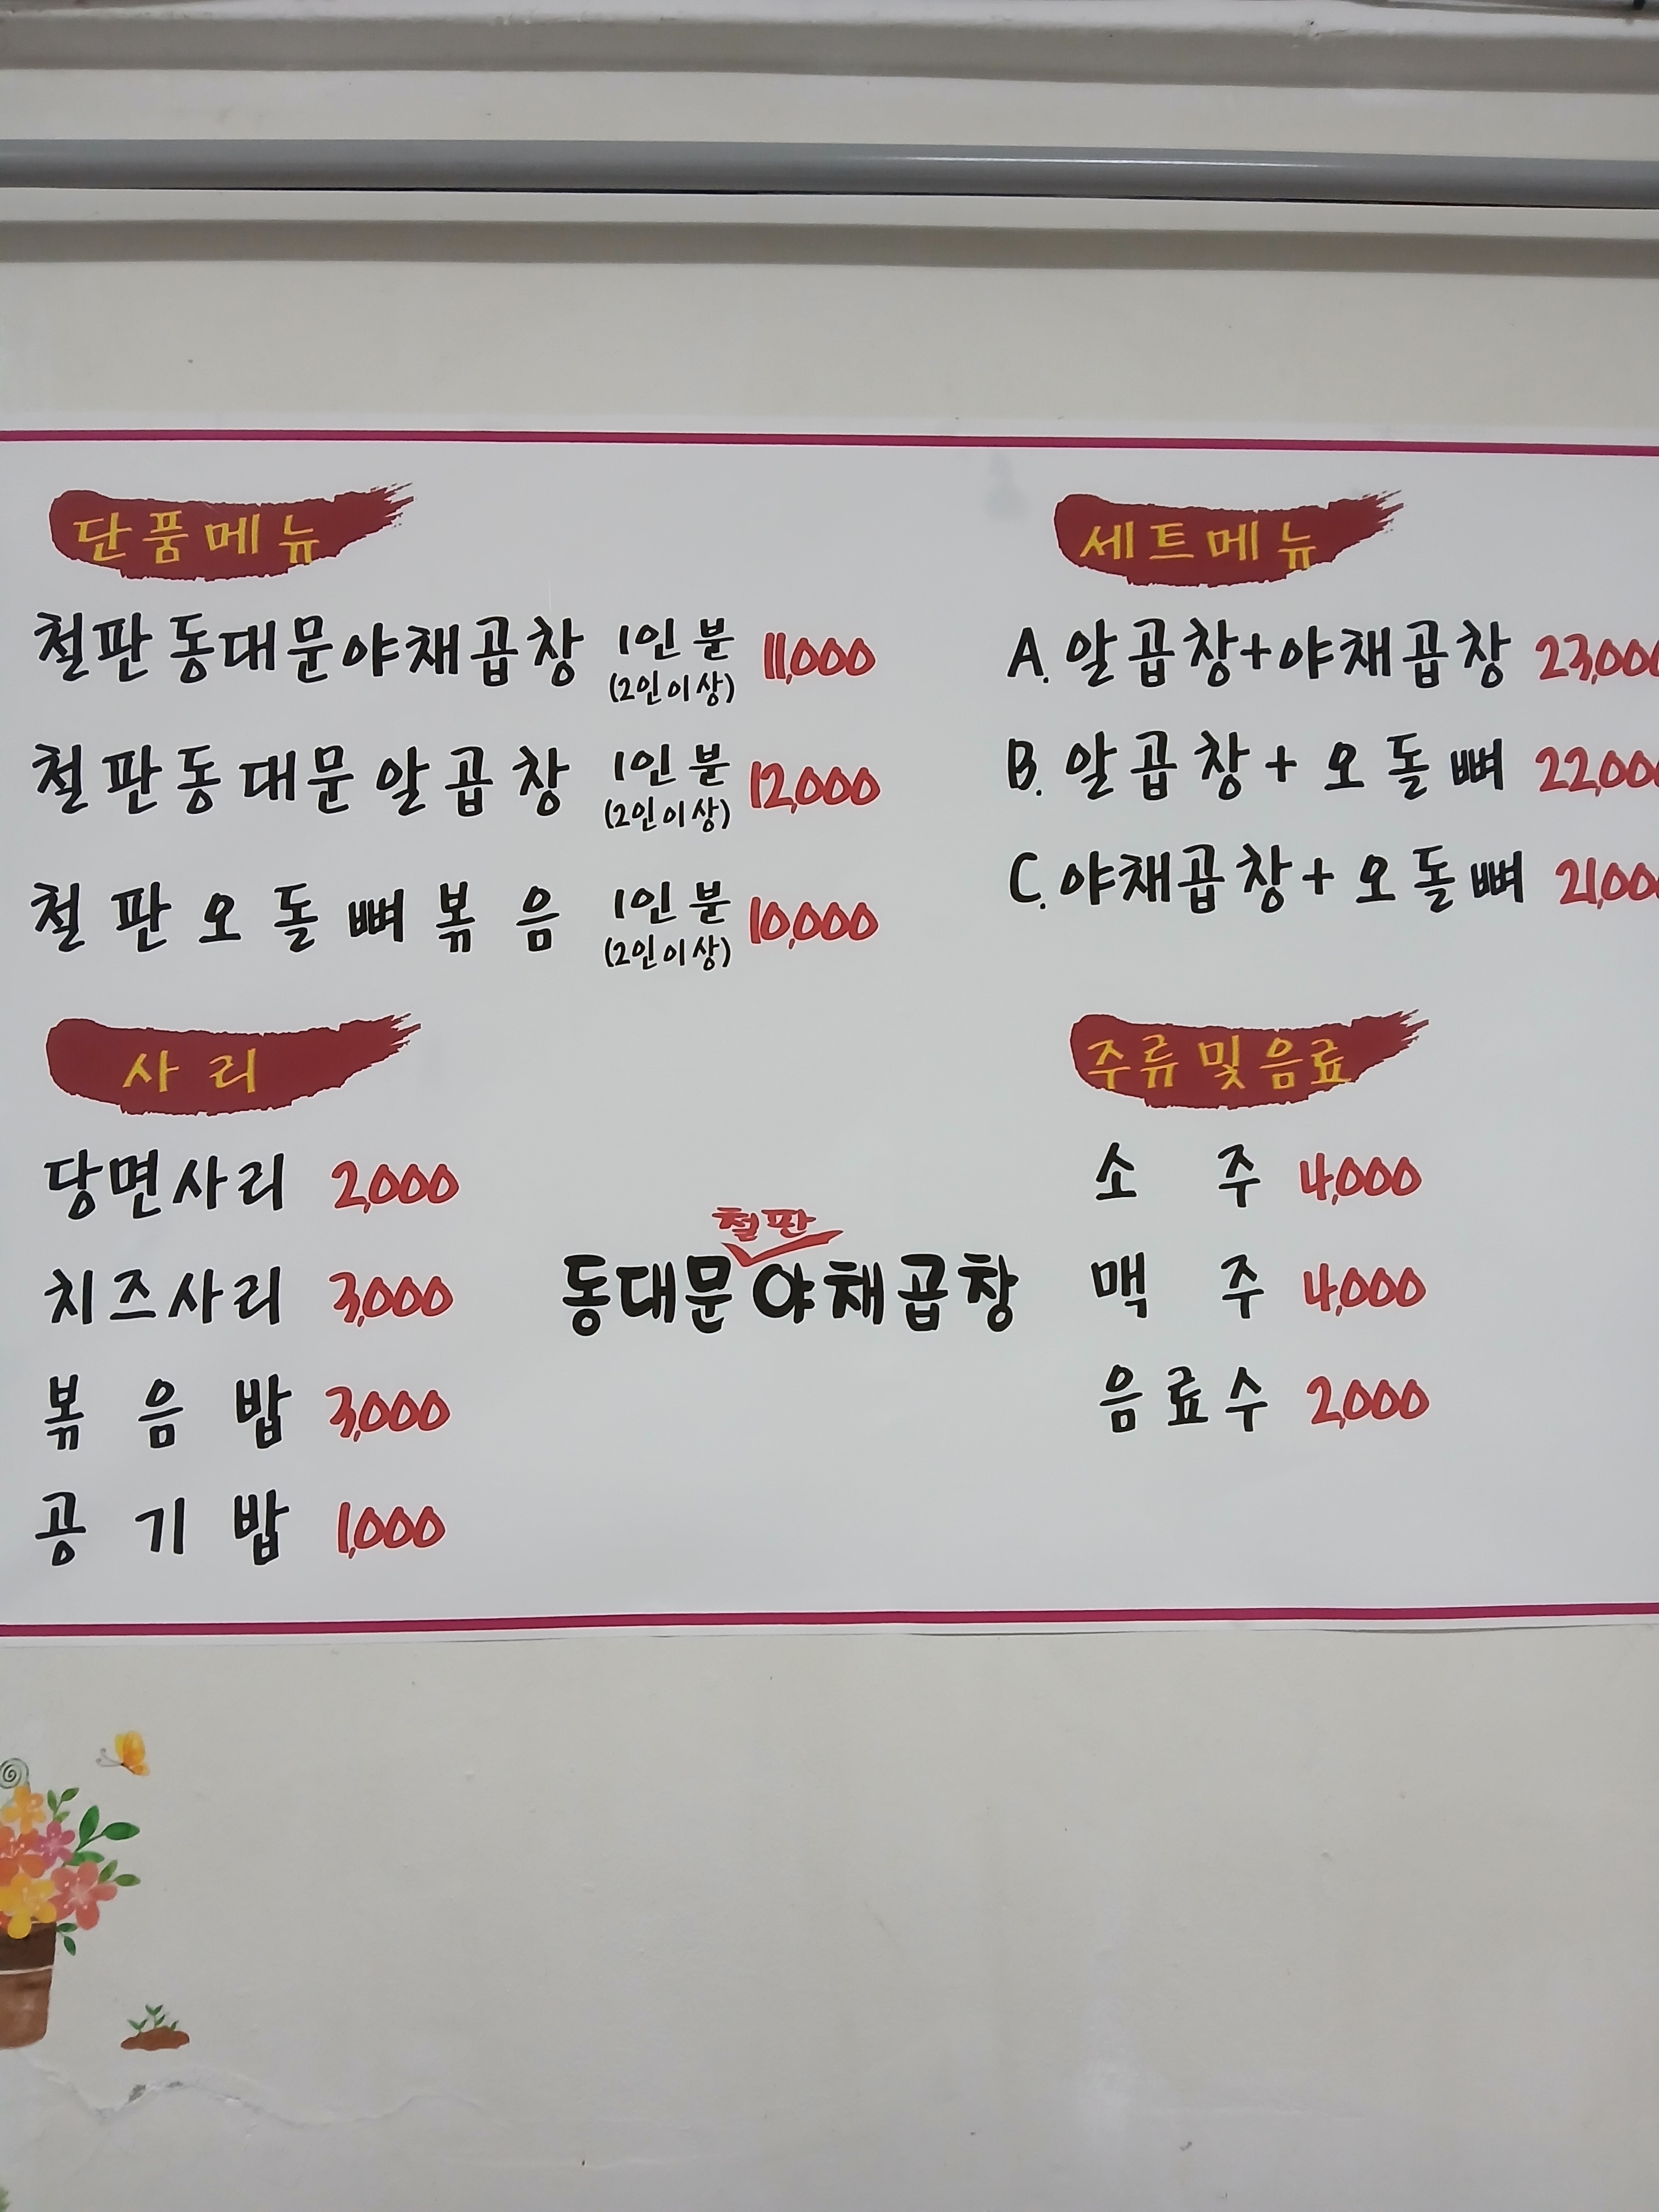 단품메뉴
철판동대문야채곱창 1인분 11,000
(2인이상)
철판동대문알곱창 1인분 12,000
(2인이상)
철판오돌뼈볶음 1인분 10,000
(2인이상)
세트메뉴
A. 알곱창+야채곱창 23,000
B. 알곱창+오돌뼈 22,000
C. 야채곱창+오돌뼈 21,000
사리
당면사리 2,000
치즈사리 3,000
볶음밥 3,000
공기밥 1,000
철판
동대문야채곱창
주류및음료
소주 4,000
맥주 4,000
음료수 2,000